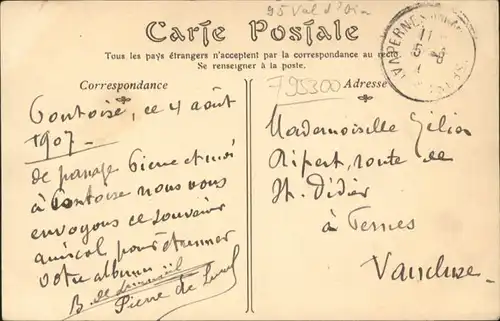 95 Val d'Oise
Carte Postale
Tous les pays étrangers n'acceptent pas la correspondance au recto.
Se renseigner à la poste.
Correspondance
F95300
Adresse
Pontoise, ce 4 août
1907.
de passage Pierre et moi
à Pontoise nous vous
envoyons ce souvenir
amical pour étrenner
votre album
B. de
Pierre de
Mademoiselle
Ripert, route de
St. Didier
à Pernes
Vaucluse.